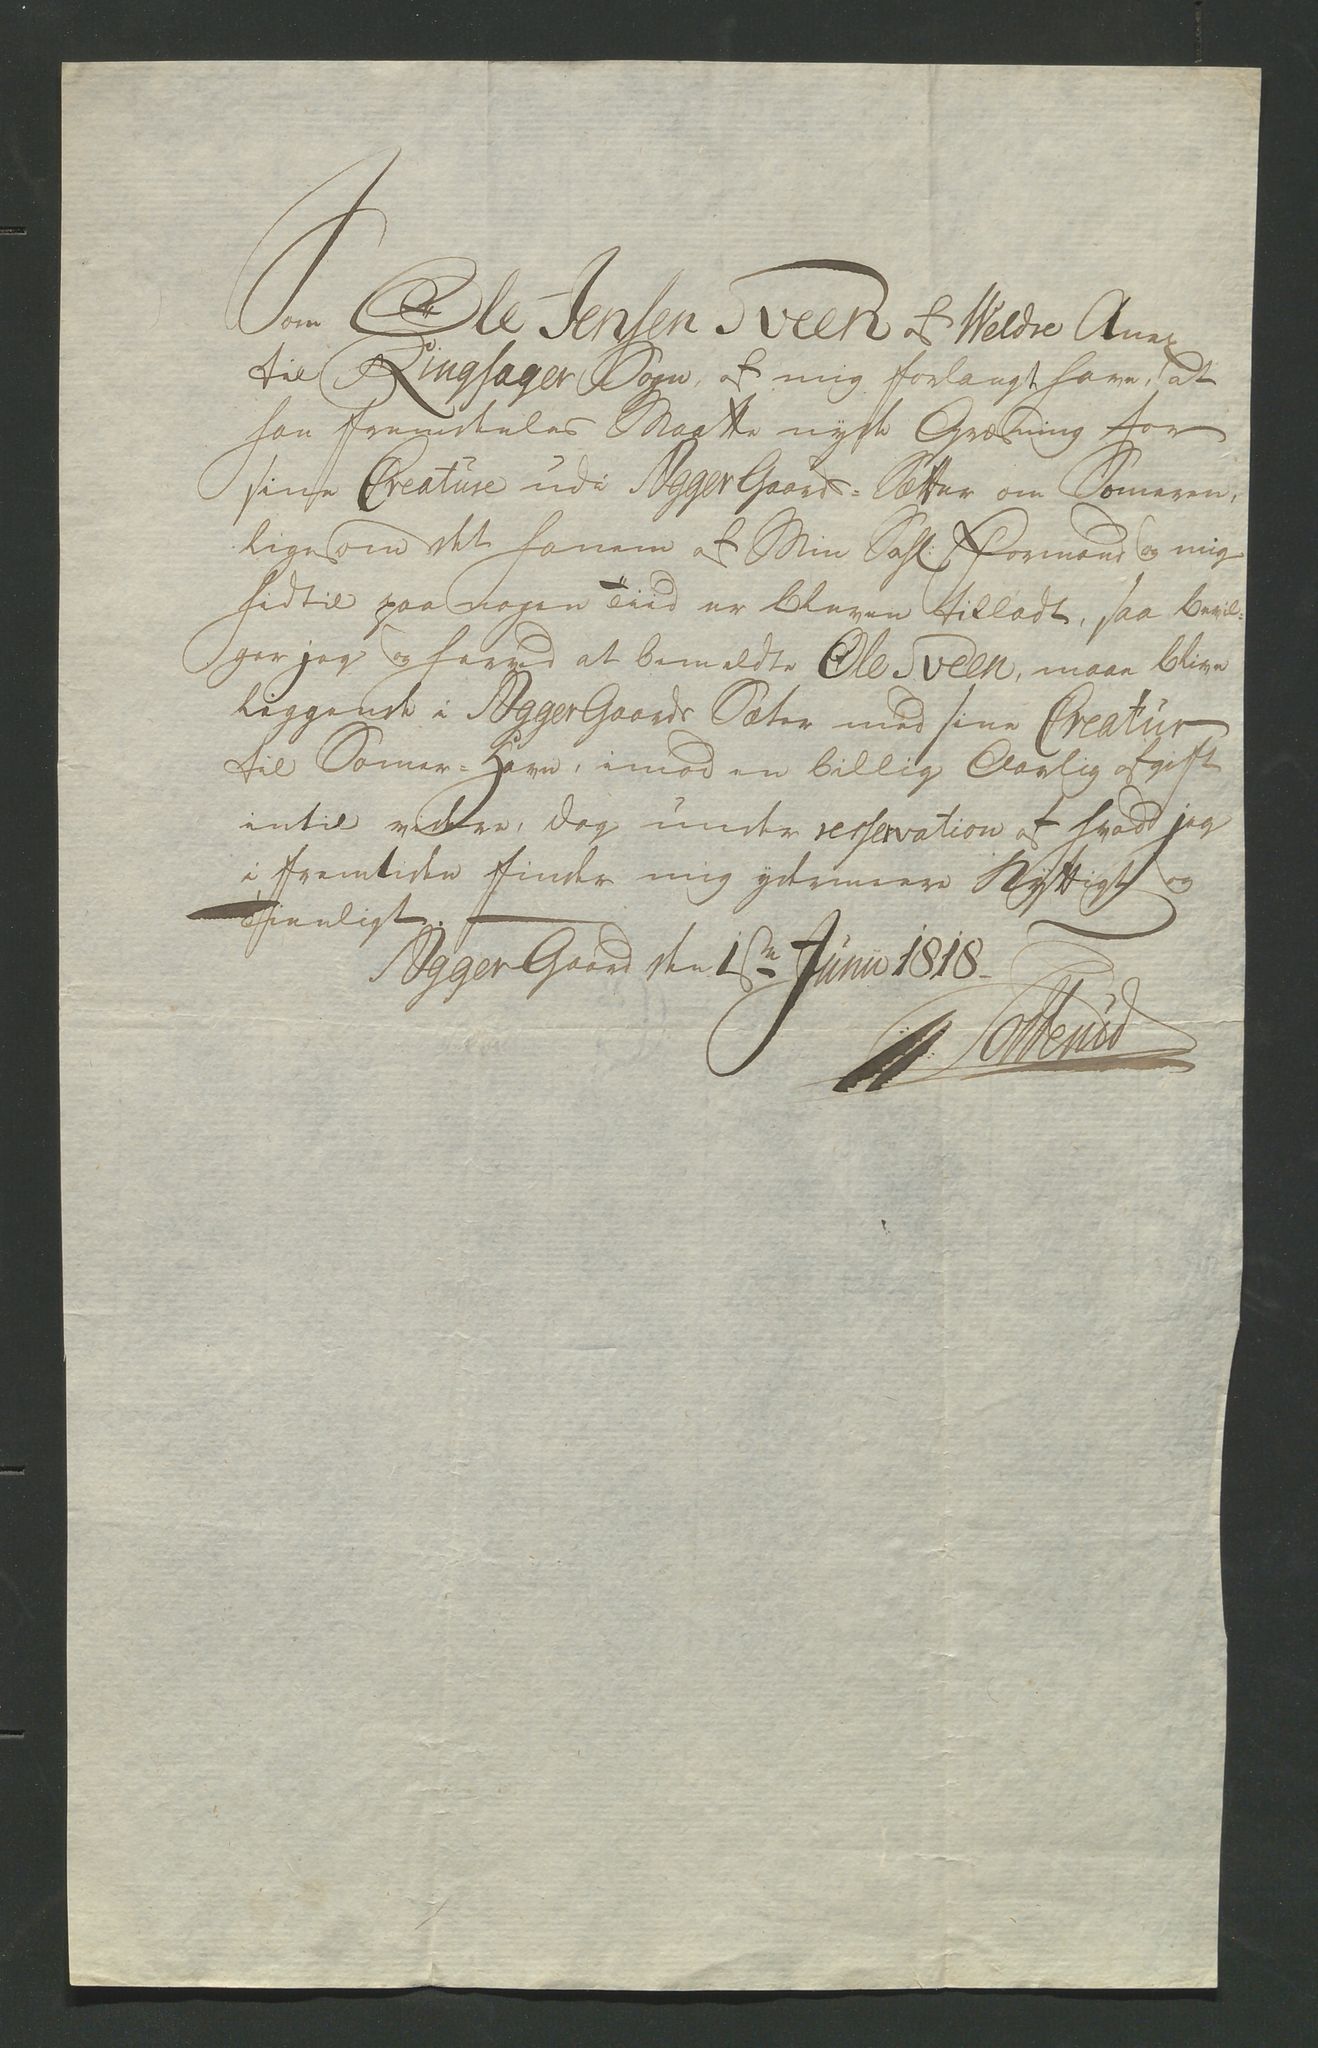 Som Ole Jensen Sveen af Weldre Anex
til Ringsager Sogn, af mig forlangt have, at
han fremdeeles Maatte nyde Græsning for
sine Creature udi AggerGaards=Sætter om Someren,
ligesom det hanem af Min Sahl: Formand og mig
hidtil paa nogen Tiid er bleven tilladt, saa bevil=
ger jeg og herved at bemeldte Ole Sveen, maae blive
liggende i AggerGaards Sæter med sine Creatur
til Somer=Havn, imod en billig Aarlig afgift
intil videre, dog under resservation af hvad jeg
i fremtiden finder mig ydermeere Nyttigt og
Tienligt.
AggerGaard den 1ste Junii 1818.
Sotterud